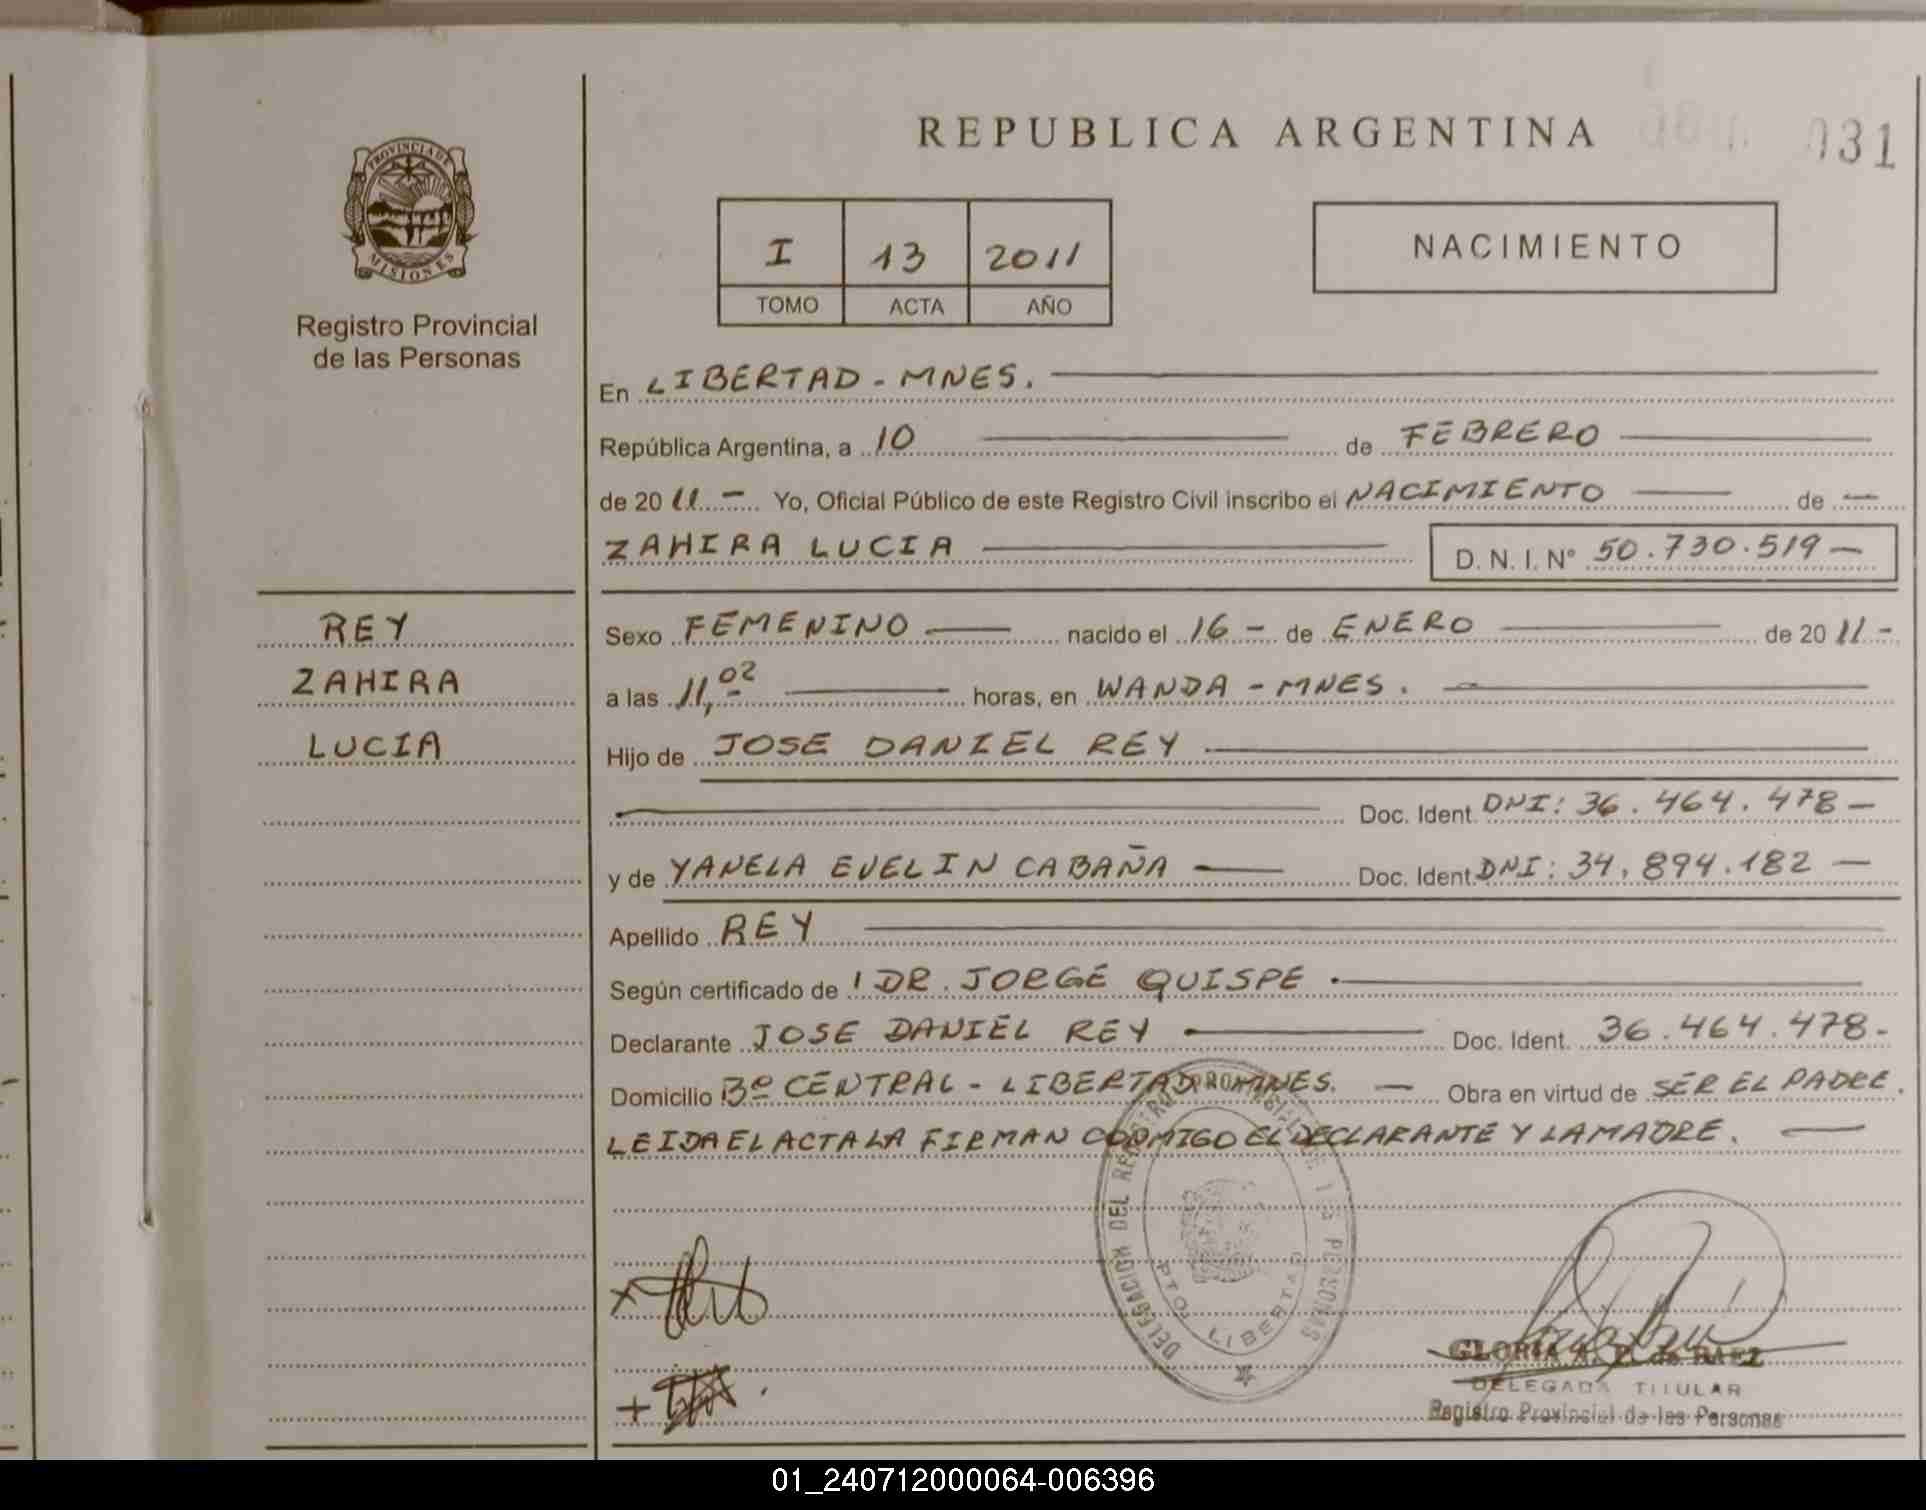 REPUBLICA ARGENTINA
031
PROVINCIA DE
MISIONES
Registro Provincial
de las Personas
I 13 2011
TOMO ACTA AÑO
NACIMIENTO
En LIBERTAD - MNES.
República Argentina, a 10 de FEBRERO
de 20 11.- Yo, Oficial Público de este Registro Civil inscribo el NACIMIENTO de
ZAHIRA LUCIA D. N. I. N° 50.730.519
REY
ZAHIRA
LUCIA
Sexo FEMENINO nacido el 16 - de ENERO de 20 11 -
a las 11,02 horas, en WANDA - MNES.
Hijo de JOSE DANIEL REY
Doc. Ident. DNI: 36.464.478
y de YANELA EVELIN CABAÑA Doc. Ident. DNI: 34.894.182
Apellido REY
Según certificado de DR. JORGE QUISPE
Declarante JOSE DANIEL REY Doc. Ident. 36.464.478-
Domicilio Bº CENTRAL - LIBERTAD MNES. Obra en virtud de SER EL PADRE.
LEIDA EL ACTA LA FIRMAN CONMIGO EL DECLARANTE Y LA MADRE.
DELEGACION DEL REGISTRO PROVINCIAL DE LAS PERSONAS
PTO. LIBERTAD
GLORIA A. P. de BAEZ
DELEGADA TITULAR
Registro Provincial de las Personas
01_240712000064-006396